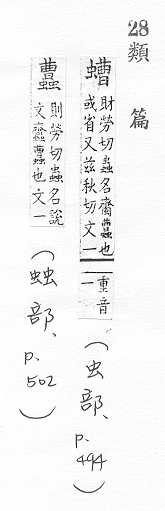 28類 篇
螬 財勞切蟲名齏也
或省又茲秋切文一 重音
一
（虫部、p.494）
則勞切蟲名說
文也文一
（䖵部、p.502）